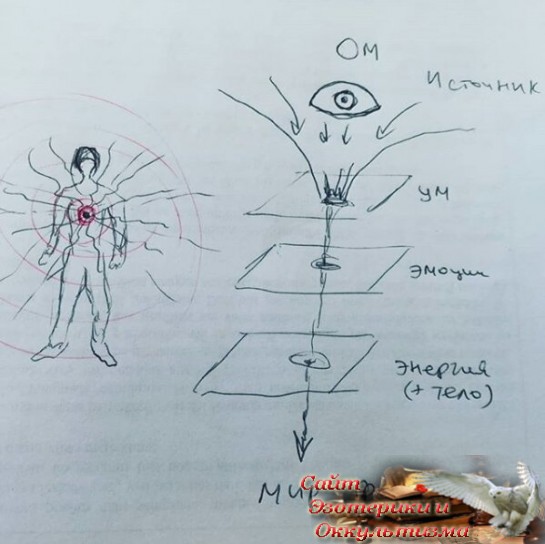 Ом
Источник
ум
эмоции
энергия
(+ тело)
Сайт
Эзотерики и
Оккультизма